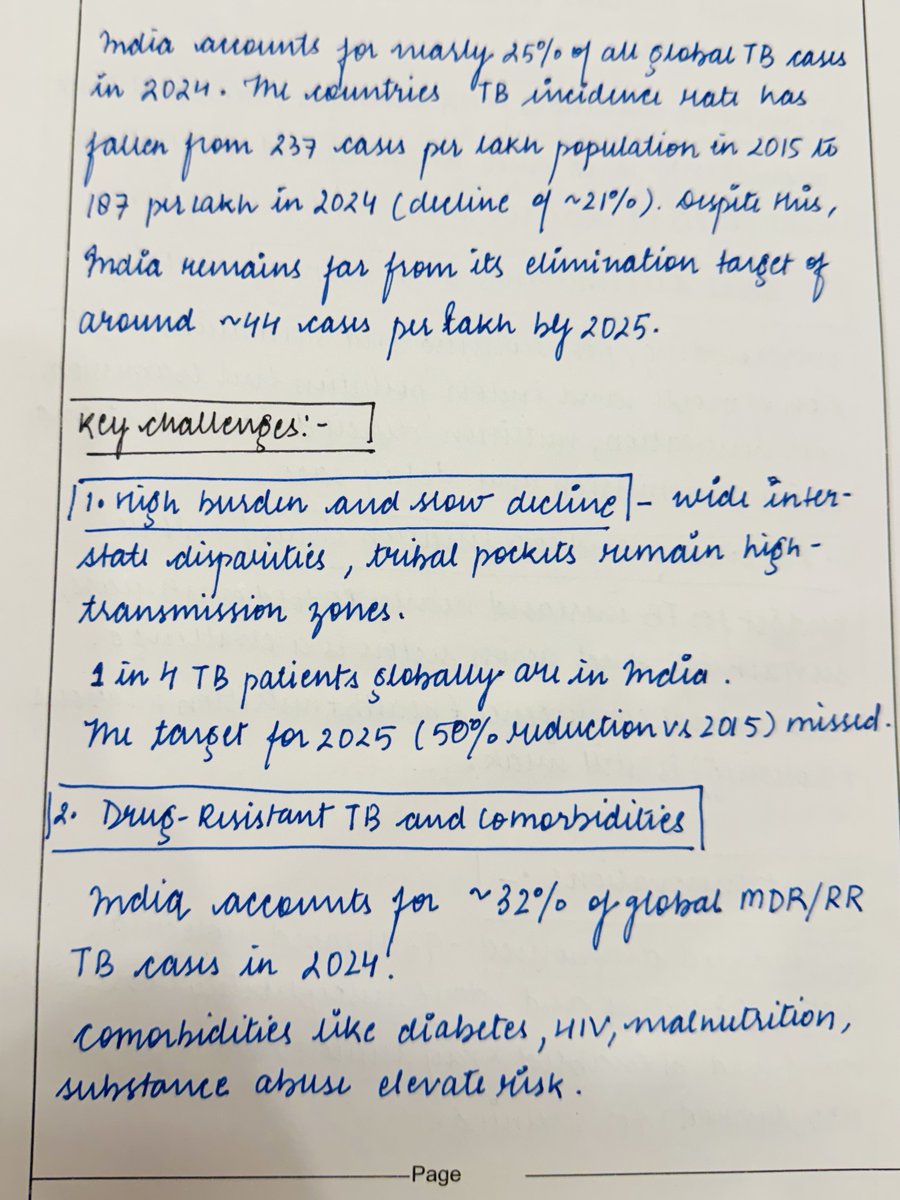 India accounts for nearly 25% of all global TB cases
in 2024. The countries TB incidence rate has
fallen from 237 cases per lakh population in 2015 to
187 per lakh in 2024 (decline of ~21%). Despite this,
India remains far from its elimination target of
around ~44 cases per lakh by 2025.
Key challenges:-
1. High burden and slow decline - wide inter-
state disparities, tribal pockets remain high-
transmission zones.
1 in 4 TB patients globally are in India.
The target for 2025 (50% reduction vs 2015) missed.
2. Drug-Resistant TB and Comorbidities
India accounts for ~32% of global MDR/RR
TB cases in 2024.
Comorbidities like diabetes, HIV, malnutrition,
substance abuse elevate risk.
Page